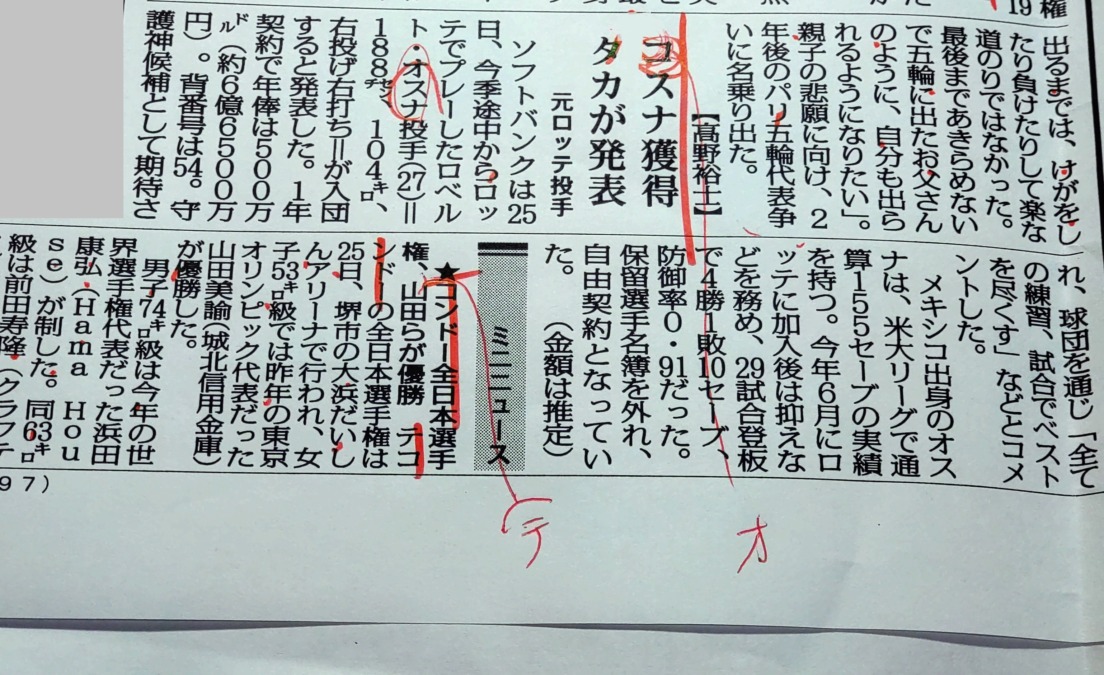 19権
出るまでは、けがをし
たり負けたりして楽な
道のりではなかった。
最後まであきらめない
で五輪に出たお父さん
のように、自分も出ら
れるようになりたい」。
親子の悲願に向け、2
年後のパリ五輪代表争
いに名乗り出た。
【髙野裕士】
コスナ獲得
タカが発表
元ロッテ投手
ソフトバンクは25
日、今季途中からロッ
テでプレーしたロベル
ト・オスナ投手(27)=
188㌢、104㌔、
右投げ右打ち=が入団
すると発表した。1年
契約で年俸は500万
㌦(約6億6500万
円)。背番号は54。守
護神候補として期待さ
れ、球団を通じ「全て
の練習、試合でベスト
を尽くす」などとコメ
ントした。
メキシコ出身のオス
ナは、米大リーグで通
算155セーブの実績
を持つ。今年6月にロ
ッテに加入後は抑えな
どを務め、29試合登板
で4勝1敗10セーブ、
防御率0・91だった。
保留選手名簿を外れ、
自由契約となってい
た。(金額は推定)
ミニニュース
★コンドー全日本選手
権、山田らが優勝 テコ
ンドーの全日本選手権は
25日、堺市の大浜だいし
んアリーナで行われ、女
子53㌔級では昨年の東京
オリンピック代表だった
山田美諭(城北信用金庫)
が優勝した。
男子74㌔級は今年の世
界選手権代表だった浜田
康弘(Hama Hou
se)が制した。同63㌔
級は前田寿隆(クラフテ
97)
オ
テ